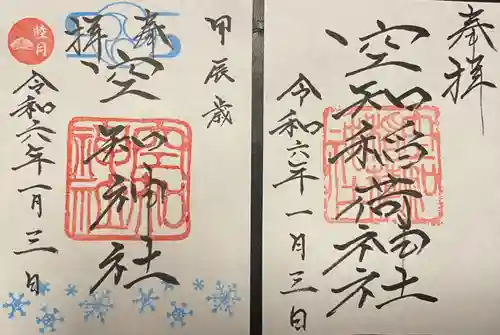 甲辰歳
奉拝
空知神社
令和六年一月三日
睦月
空知神社
奉拝
空知稲荷神社
令和六年一月三日